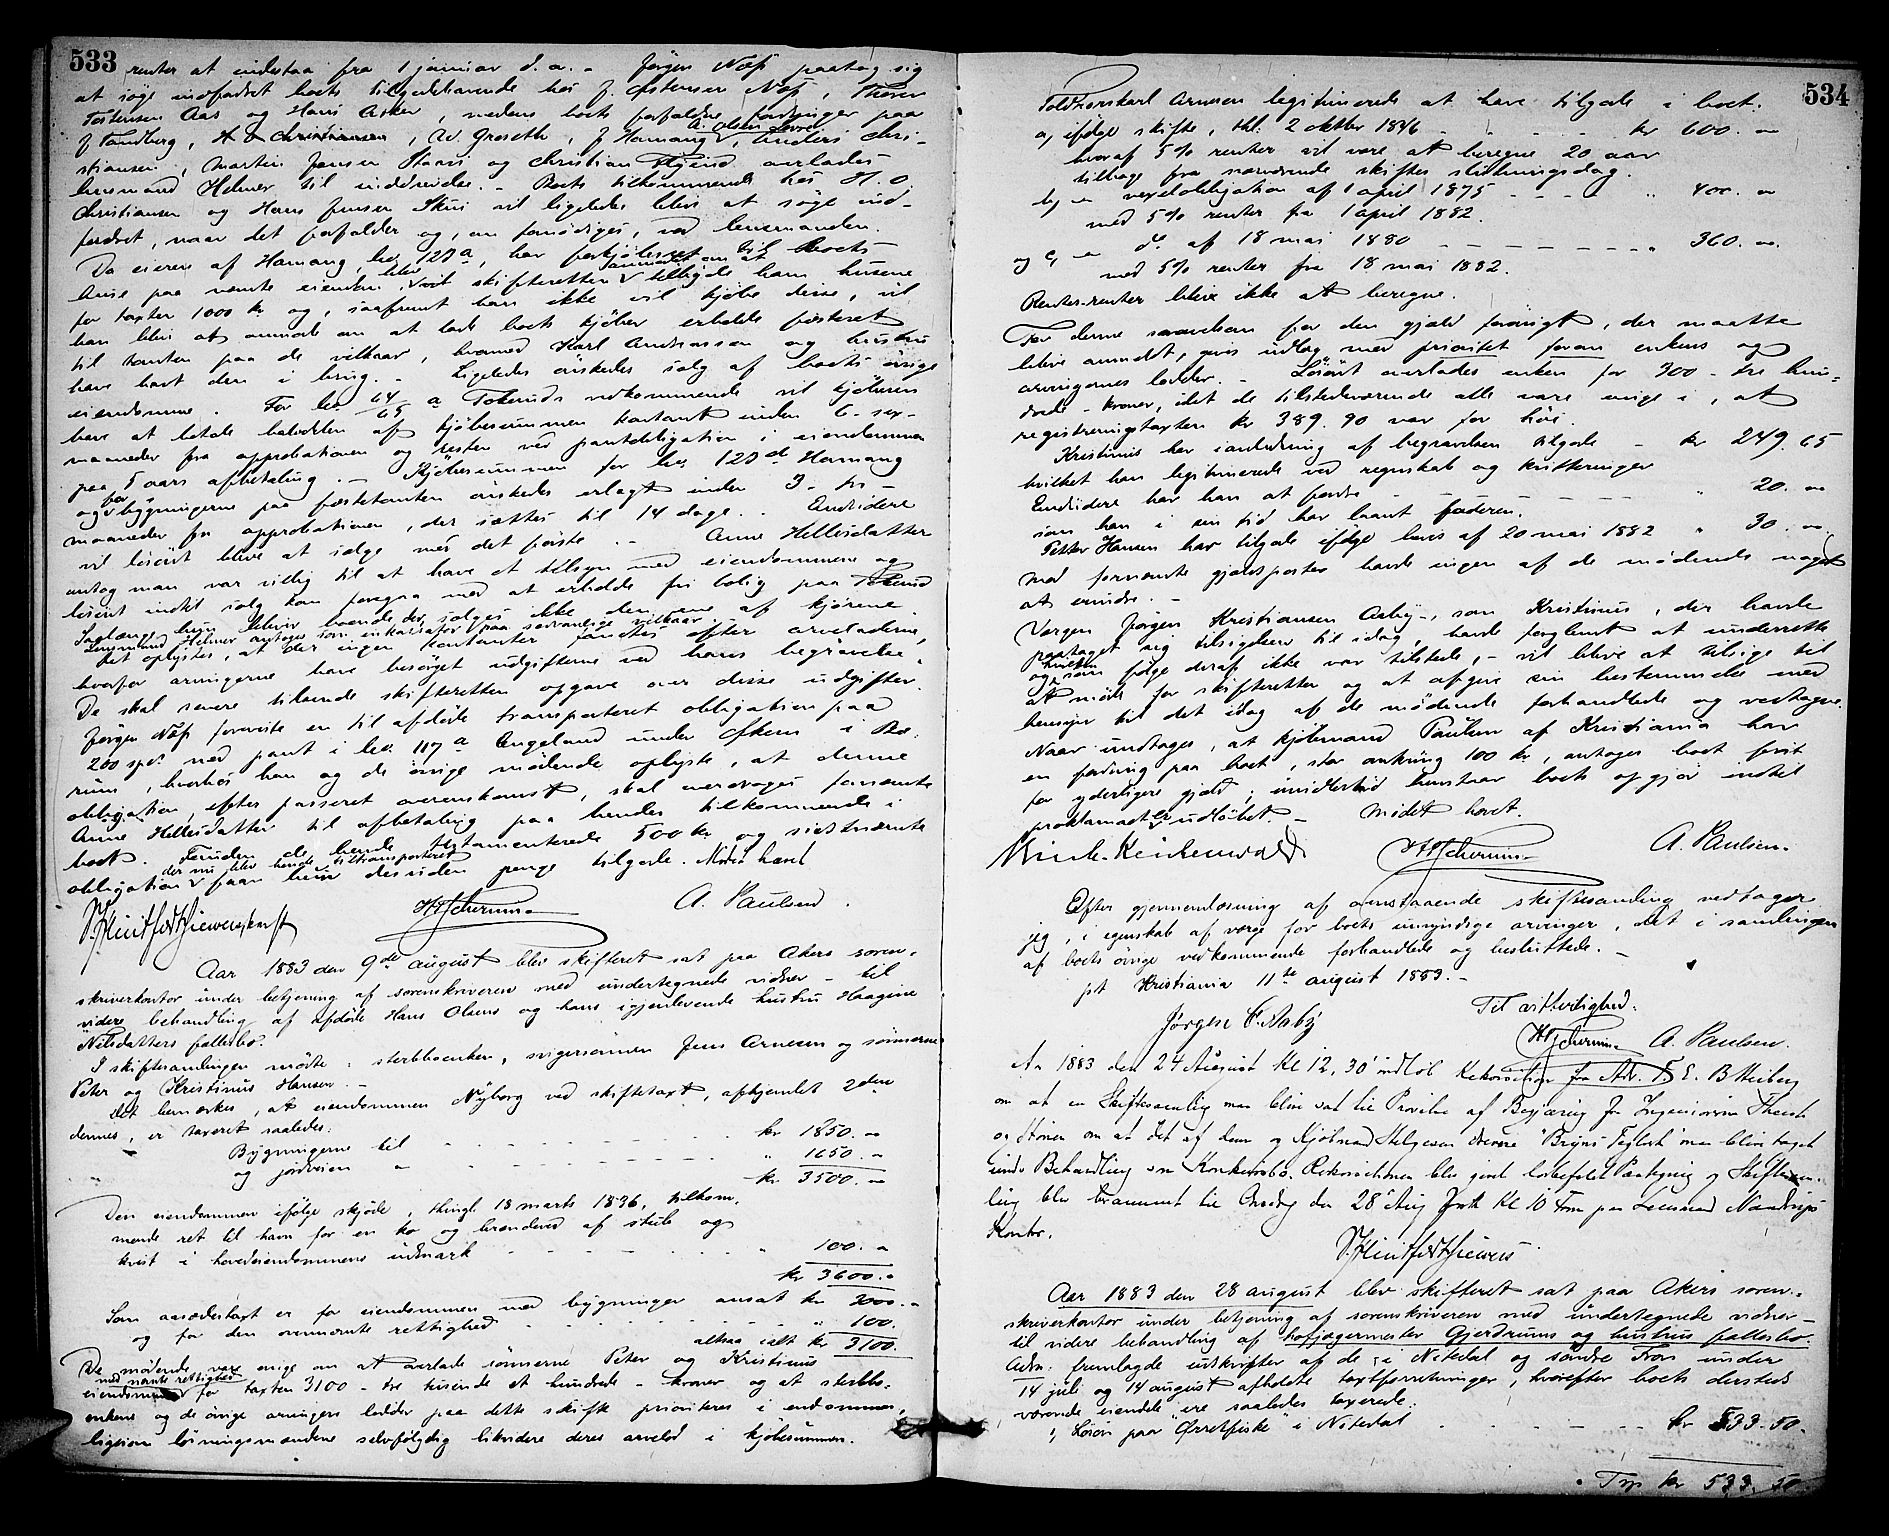 533
renter at indestaa fra 1 januar d. a. - Jørgen Næs paatog sig
at søge indfodret boets tilgodehavende hos J. Østensen Næs, Thorer
Torstensen Aas og Hans Asker, medens boets forfaldne fordringer paa
J Tandberg, H O Christiansen, Av. Groseth, J Hamang, A. Olsen Levre, Anders Chri-
stiansen, Martin Jensen Stavi og Christian Gjeind overlades
lensmand Helmer til inddrivelse. - Boets tilkommende hos H. O.
Christiansen og Hans Jensen Skui vil ligeledes blive at søge ind-
fordret, naar det forfalder og, om fornødiges, ved lensmanden.
Da eieren af Hamang, lno 127a, har forkjøbsret til boets
huse paa nævnte eiendom, blev vil skifteretten anmodet om at tilbyde ham husene
for taxten 1000 kr og, saafremt han ikke vil kjøbe disse, vil
han blive at anmode om at lade boets kjøber erholde fæsteret
til tomten paa de vilkaar, hvormed Karl Andreassen og hustru
have havt den i brug. - Ligeledes ønskedes salg af boets øvrige
eiendomme. For lno 64/65 a Tokeruds vedkommende vil kjøberen
have at betale halvdelen af kjøbesummen kontant inden 6 - sex -
maaneder fra approbationen og resten ved pantobligation i eiendommen
paa 5 aars afbetaling. - Kjøbesummen for lno 127d Hamang
og for bygningerne paa fæstetomten ønskedes erlagt inden 3 - tre -
maaneder fra approbationen, der sættes til 14 dage. - Endvidere
vil løsøret blive at sælge med det første. - Anne Hellesdatter
antog man var villig til at have et tilsyn med eiendommene og
løsøret indtil salg kan foregaa mod at erholde fri bolig paa Tokerud
Saalænge hun bliver boende der, sælges ikke den ene af kjørene.
Lensmand Helmer antoges som inkassator paa sædvanlige vilkaar.
Det oplystes, at der ingen kontanter fandtes efter arveladeren,
hvorfor arvingerne have besørget udgifterne ved hans begravelse.
De skal senere tilsende skifteretten opgave over disse udgifter.
Jørgen Næs foreviste en til afdøde transporteret obligation paa
200 spd. med pant i lno 117a Engeland under Økern i Bæ-
rum, hvorhos han og de øvrige mødende oplyste, at denne
obligation, efter passeret overenskomst, skal overdrages fornævnte
Anne Hellesdatter til afbetaling paa hendes tilkommende i
boet. Foruden de hende testamenterede 500 kr og sidstnævnte
obligation, der nu blev hende tiltransporteret, faar hun desuden penge tilgode. Mødet hævet
HScherven A. Paulsen.
Aar 1883 den 9de august blev skifteret sat paa Akers soren-
skriverkontor under betjening af sorenskriveren med undertegnede vidner - til
videre behandling af afdøde Hans Olsens og hans igjenlevende hustru Haagine
Nilsdatters fællesbo.
I skiftesamlingen mødte: sterboenken, svigersønnen Jens Arnesen og sønnerne
Peter og Kristinus Hansen. -
Det bemærkes, at eiendommen Nyborg ved skiftetaxt, afhjemlet 2den
dennes, er taxeret saaledes:
Bygningerne til - - - - - kr 1850. "
og jordveien " - - - - - " 1650. "
kr 3500. "
Den eiendommen ifølge skjøde, thingl. 18 marts 1836, tilkom-
mende ret til havn for en ko og brændeved af stub og
kvist i hovedeiendommens udmark - - - - " 100. "
kr 3600. "
Som aasædestaxt er for eiendommen med bygninger ansat kr 3000. "
og for den ovennævnte rettighed - - - - - " 100.
altsaa ialt kr 3100.
De mødende vare enige om at overlade sønnerne Peter og Kristinus
eiendommen med nævnte rettighed for taxten 3100 - tre tusinde et hundrede - kroner og at sterbo-
enkens og de øvrige arvingers lodder paa dette skifte prioriteres i eiendommen,
ligesom løsningsmændene selvfølgelig likvidere deres arvelod i kjøbesummen.
534
Toldoverskarl Arnesen legitimerede at have tilgode i boet:
a, ifølge skifte, thl. 2 oktbr 1846 - - - - kr 600. "
hvoraf 5% renter vil være at beregne 20 aar
tilbage fra nærværende skiftes slutningsdag.
b, " vexelobligation af 1 april 1875 - - - - " 400. "
med 5% renter fra 1 april 1882.
og c, " do af 18 mai 1880 - - - - - - " 360. "
med 5% renter fra 18 mai 1882.
Renters-renter blive ikke at beregne.
For denne saavelsom for den gjæld forøvrigt, der maatte
blive anmeldt, gives udlæg med prioritet foran enkens og
arvingernes lodder. - Løsøret overlades enken for 300 - tre hun-
drede - kroner, idet de tilstedeværende alle vare enige i, at
registreringstaxten kr 389.90 var for høi.
Kristinus har i anledning af begravelsen tilgode - kr 249.65
hvilket han legitimerede ved regnskab og kvitteringer
Endvidere har han at fordre - - - - - " 20. "
som han i sin tid har laant faderen.
Petter Hansen har tilgode ifølge bevis af 20 mai 1882 " 30. "
Mod fornævnte gjældsposter havde ingen af de mødende noget
at erindre. -
Værgen Jørgen Kristiansen Aaby, som Kristinus, der havde
paataget sig tilsigelsen til idag, havde forglemt at underrette
og hvilken som følge deraf ikke var tilstede, - vil blive at tilsige til
at møde for skifteretten og at afgive sin bestemmelse med
hensyn til det idag af de mødende forhandlede og vedtagne.
Naar undtages, at kjøbmand Paulsen af Kristiania har
en fordring paa boet, stor omkring 100 kr, antages boet frit
for yderligere gjæld; imidlertid henstaar boets opgjør indtil
proklamaet er udløbet. - Mødet hævet.
HScherven A. Paulsen.
Efter gjennemlæsning af omstaaende skiftesamling vedtager
jeg, i egenskab af værge for boets umyndige arvinger, det i samlingen
af boets øvrige vedkommende forhandlede og besluttede. -
pt Kristiania 11te august 1883. -
Jørgen C. Aaby Til vitterlighed:
HScherven A. Paulsen.
Ar 1883 den 24 August Kl 12,30 indløb Rekvisition fra Adv. F. E. B Heiberg
om at en Skiftesamling maa blive sat til Prøvelse af Begjæring fra Ingeniørerne
og Steinen om at det af dem og Kjøbmand Helgesen drevne "Bryns Teglverk" maa blive taget
under Behandling som Konkursbo. Rekvisitionen blev givet lovbefalet Paategning og Skiftesam-
ling blev berammet til Onsdag den 28de Aug Kl 10 Form paa Lensmand
Kontor.
Aar 1883 den 28 august blev skifteret sat paa Akers soren-
skriverkontor under betjening af sorenskriveren med undertegnede vidner -
til videre behandling af hofjægermester Gjerdrums og hustrus fællesbo.
Adm. fremlagde udskrifter af de i Nitedal og søndre Fron under
14 juli og 14 august afholdte taxtforretninger, hvorefter boets dersteds
værende eiendele ere saaledes taxerede:
1, Løsøre paa "Ørretfiske" i Nitedal - - - - kr 533.50.
Trp kr 533.50